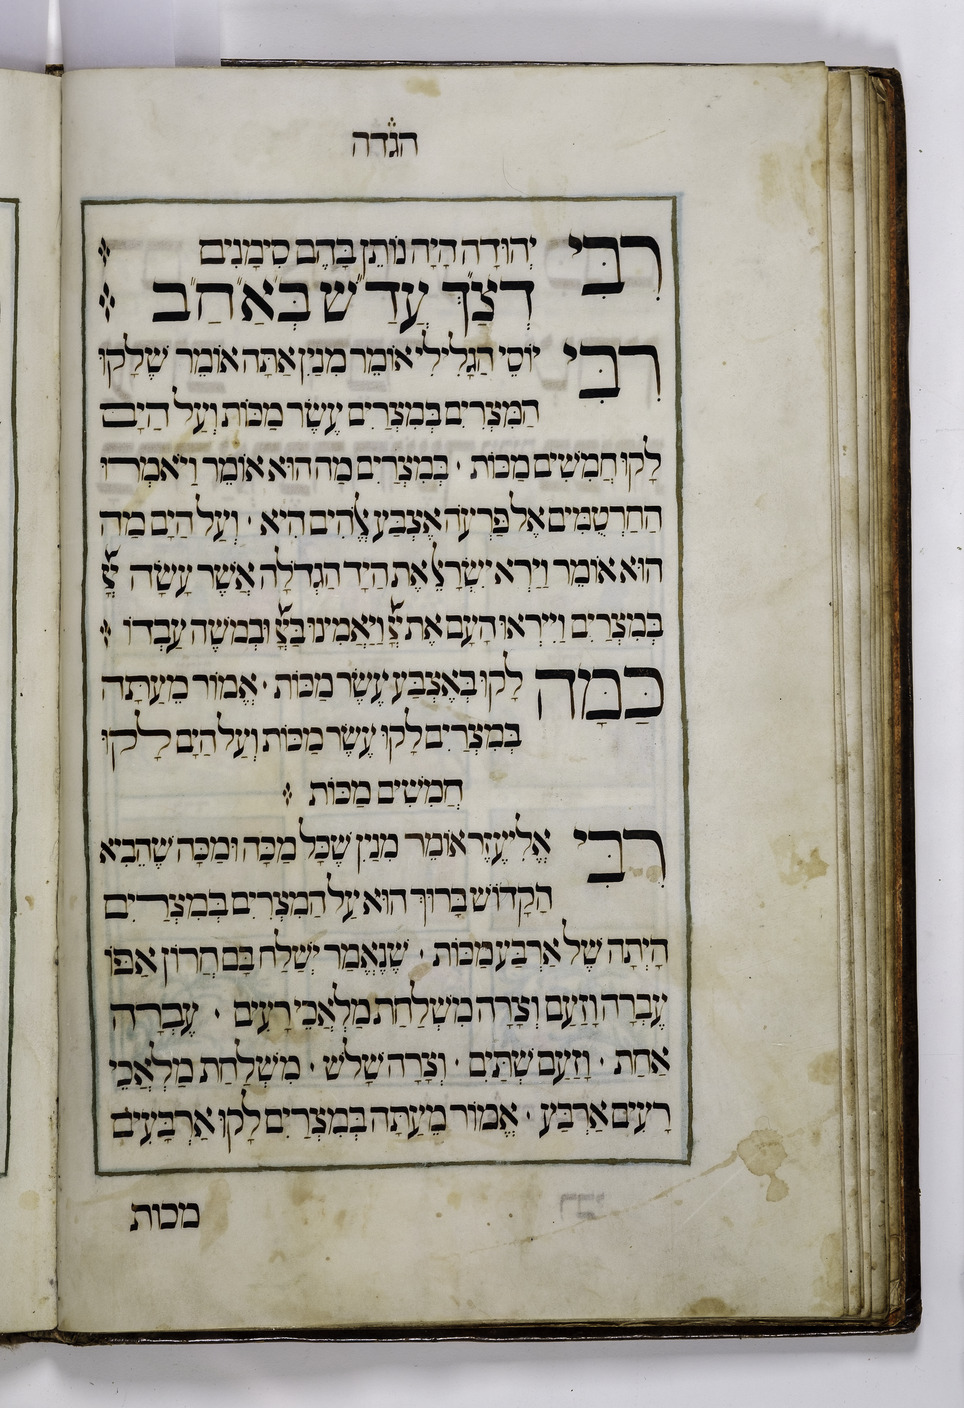 הגדה
רבי יְהוּדָה הָיָה נוֹתֵן בָּהֶם סִימָנִים
דְצַ"ךְ עֲדַ"שׁ בְּאַ"חַ"ב
רִבִּי יוֹסֵי הַגָּלִילִי אוֹמֵר מִנַיִן אַתָּה אוֹמֵר שֶׁלָקוּ
הַמִּצְרִים בְּמִצְרַיִם עֶשֶׂר מַכּוֹת וְעַל הַיָם
לָקוּ חֲמִשִׁים מַכּוֹת · בְּמִצְרַיִם מַה הוּא אוֹמֵר וַיֹּאמְרוּ
הַחַרְטֻמִּים אֶל פַּרְעֹה אֶצְבַּע אֱלֹהִים הִיא · וְעַל הַיָּם מַה
הוּא אוֹמֵר וַיַּרְא יִשְׂרָאֵל אֶת הַיָד הַגְדֹלָה אֲשֶׁר עָשָׂה יְיָ
בְּמִצְרַיִם וַיִּירְאוּ הָעָם אֶת יְיָ וַיַּאֲמִינוּ בַּיְיָ וּבְמֹשֶׁה עַבְדוֹ
כַּמָּה לָקוּ בְּאֶצְבַּע עֶשֶׂר מַכּוֹת · אֱמוֹר מֵעַתָּה
בְּמִצְרַיִם לָקוּ עֶשֶׂר מַכּוֹת וְעַל הַיָּם לָקוּ
חֲמִשִׁים מַכּוֹת
רִבִּי אֱלִיעֶזֶר אוֹמֵר מִנַיִן שֶׁכָּל מַכָּה וּמַכָּה שֶׁהֵבִיא
הַקָדוֹשׁ בָּרוּךְ הוּא עַל הַמִּצְרִים בְּמִצְרַיִם
הָיְתָה שֶׁל אַרְבַּע מַכּוֹת · שֶׁנֶּאֱמַר יְשַׁלַח בָּם חֲרוֹן אַפּוֹ
עֶבְרָה וָזַעַם וְצָרָה מִשְׁלַחַת מַלְאֲכֵי רָעִים · עֶבְרָה
אַחַת · וָזַעַם שְׁתַּיִם · וְצָרָה שָׁלֹשׁ · מִשְׁלַחַת מַלְאֲכֵי
רָעִים אַרְבַּע · אֱמוֹר מֵעַתָּה בְּמִצְרַיִם לָקוּ אַרְבָּעִים
מכות